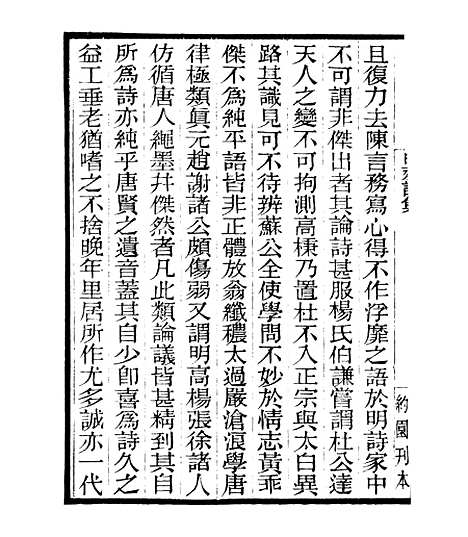 且復力去陳言務寫心得不作浮靡之語於明詩家中
不可謂非傑出者其論詩甚服楊氏伯謙嘗謂杜公達
天人之變不可拘測高棅乃置杜不入正宗與太白異
路其識見可不待辨蘇公全使學問不妙於情志黃乖
傑不為純平語皆非正體放翁纖穠太過嚴滄浪學唐
律極類眞元趙謝諸公頗傷弱又謂明高楊張徐諸人
仿循唐人繩墨幷傑然者凡此類論議皆甚精到其自
所為詩亦純乎唐賢之遺音蓋其自少卽喜為詩久之
益工垂老猶嗜之不捨晚年里居所作尤多誠亦一代
約園刊本